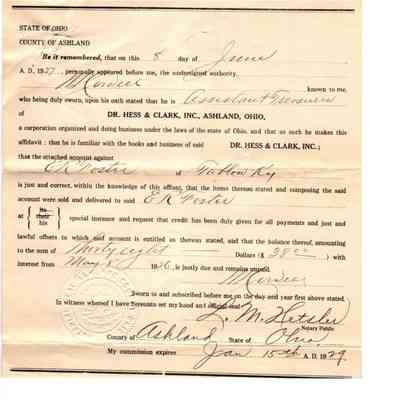 STATE OF OHIO
COUNTY OF ASHLAND
Be it remembered, that on this 8 day of June
A. D. 1927, personally appeared before me, the undersigned authority.
known to me,
who being duly sworn, upon his oath stated that he is Assistant Treasurer
of
DR. HESS & CLARK, INC., ASHLAND, OHIO,
a corporation organized and doing business under the laws of the state of Ohio, and that as such he makes this
affidavit: that he is familiar with the books and business of said DR. HESS & CLARK, INC.;
that the attached account against
E K Foster of Ky
is just and correct, within the knowledge of this affiant, that the items thereon stated and composing the said
account were sold and delivered to said E K Foster
at { their his } special instance and request that credit has been duly given for all payments and just and
lawful offsets to which said account is entitled as thereon stated, and that the balance thereof, amounting
to the sum of Thirty eight Dollars ($ 38 00 ) with
interest from May 1926, is justly due and remains unpaid.
Sworn to and subscribed before me on the day and year first above stated.
In witness whereof I have hereunto set my hand and official seal
L. M. Hetsler
Notary Public
County of Ashland State of Ohio.
My commission expires Jan 15th A. D. 1929.